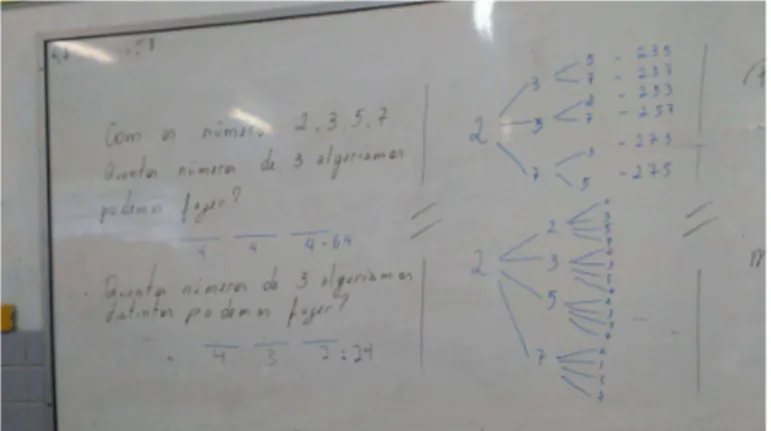 Com os número 2, 3, 5, 7
Quantos números de 3 algarismos
podemos fazer?
4 4 4 = 64
- Quantos números de 3 algarismos
distintos podemos fazer?
4 3 2 = 24
2
3
5 - 235
7 - 237
5
3 - 253
7 - 257
7
3 - 273
5 - 275
2
2
3
5
7